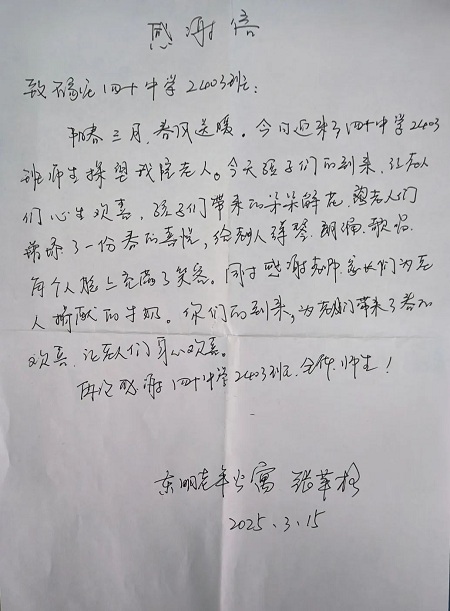 感谢信
致石家庄四十中学2403班:
阳春三月,春风送暖。今日迎来了四十中学2403
班师生探望我院老人。今天孩子们的到来,让老人
们心生欢喜,孩子们带来的朵朵鲜花,为老人们
增添了一份春的喜悦,给老人弹琴、朗诵、歌唱,
每个人脸上充满了笑容。同时感谢老师、家长们为老
人捐献的牛奶。你们的到来,为老人们带来了春的
欢喜,让老人们身心欢喜。
再次感谢四十中学2403班全体师生!
东明老年公寓 张
2025.3.15